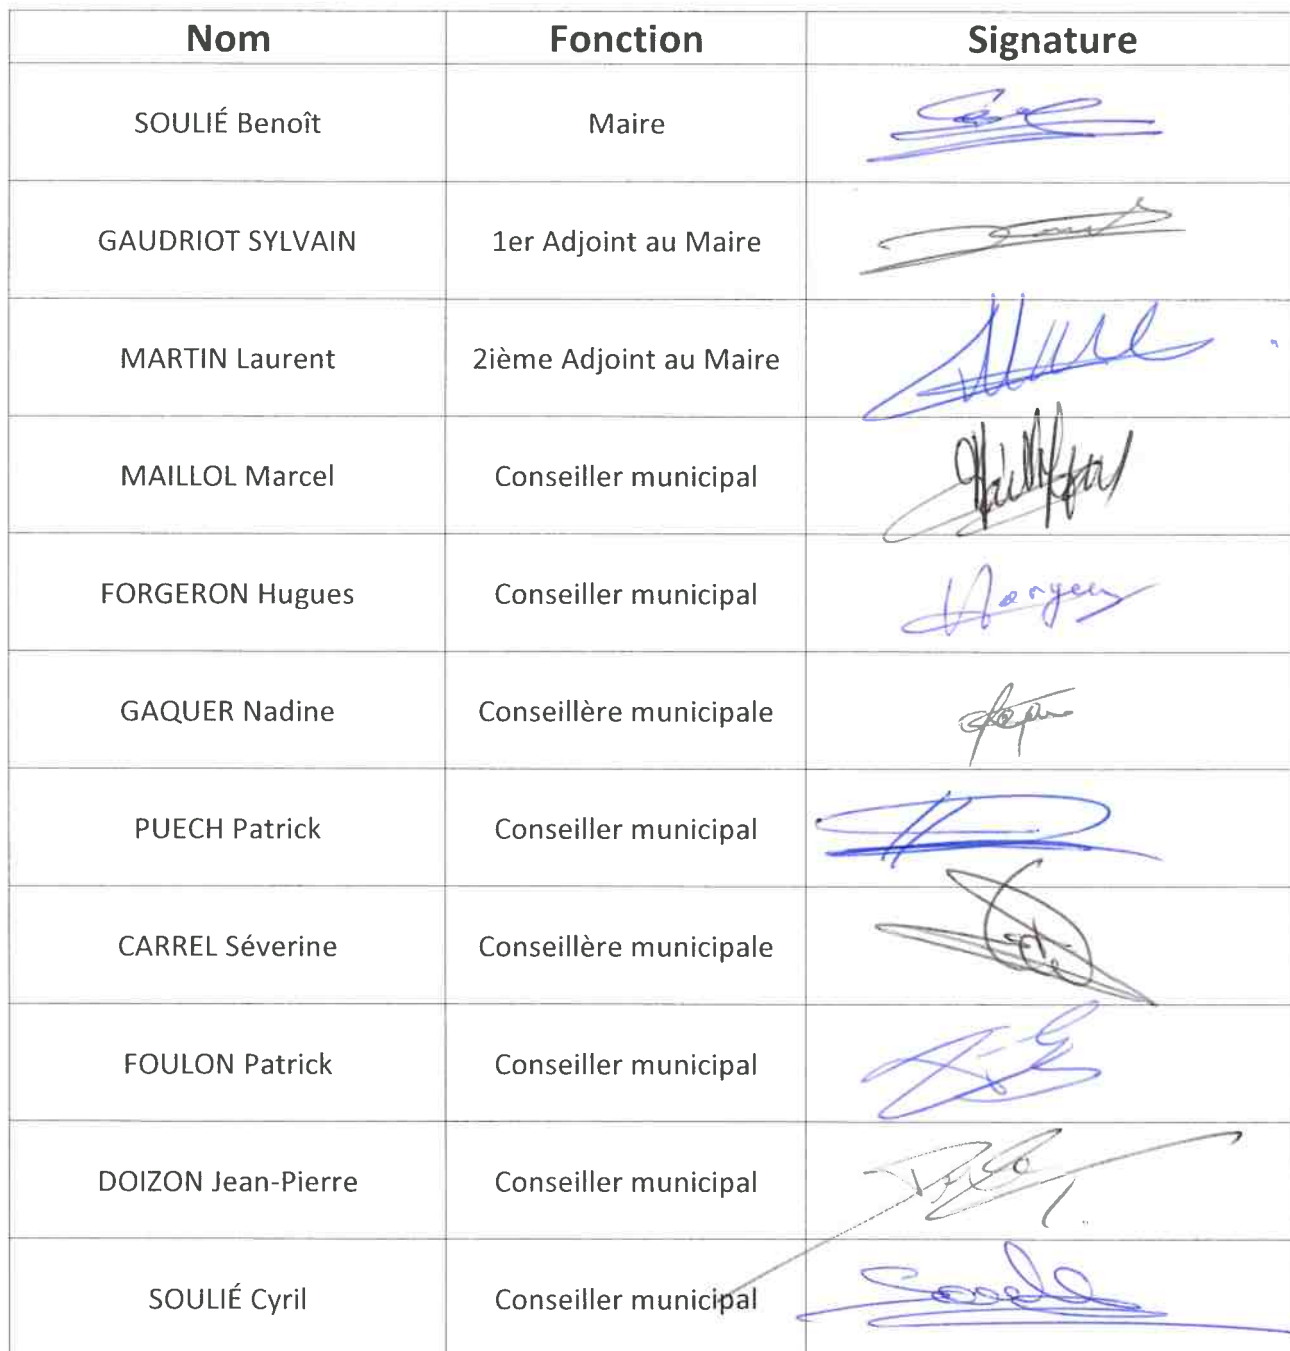 Nom Fonction Signature
SOULIÉ Benoît Maire
GAUDRIOT SYLVAIN 1er Adjoint au Maire
MARTIN Laurent 2ième Adjoint au Maire
MAILLOL Marcel Conseiller municipal
FORGERON Hugues Conseiller municipal
GAQUER Nadine Conseillère municipale
PUECH Patrick Conseiller municipal
CARREL Séverine Conseillère municipale
FOULON Patrick Conseiller municipal
DOIZON Jean-Pierre Conseiller municipal
SOULIÉ Cyril Conseiller municipal